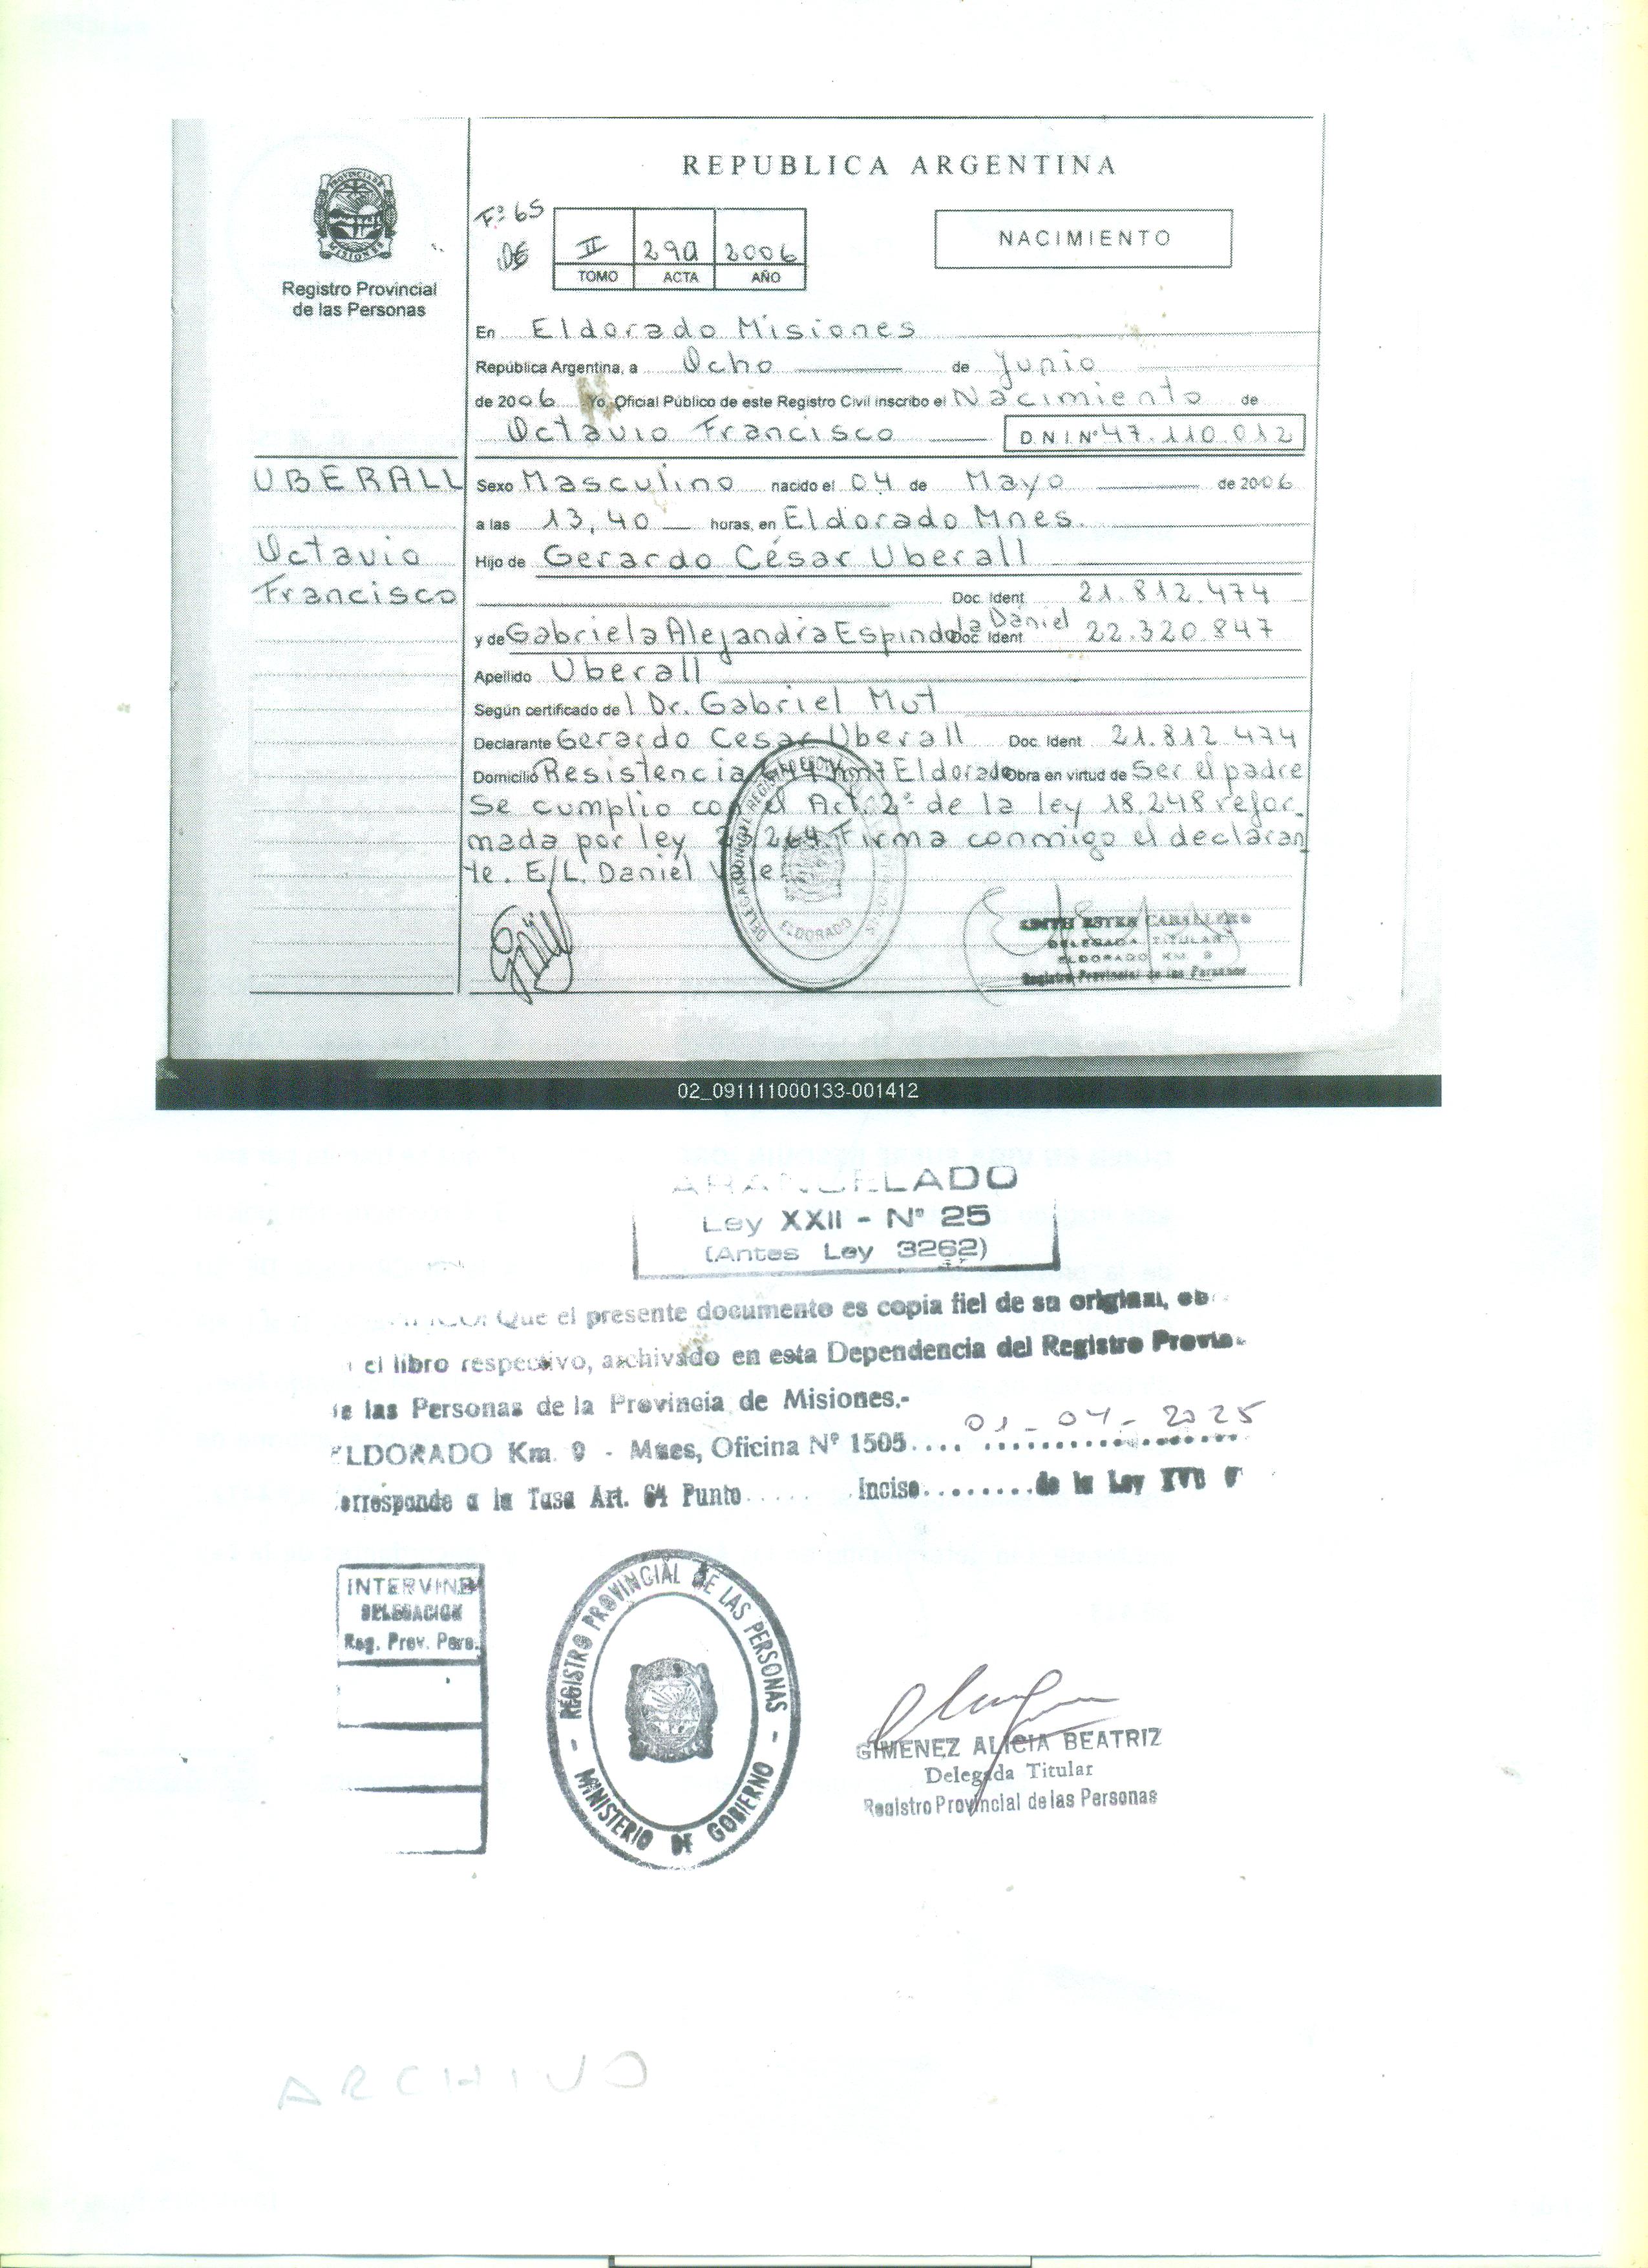 REPUBLICA ARGENTINA
PROVINCIA DE
MISIONES
Registro Provincial
de las Personas
Fº 65
II 290 2006
TOMO ACTA AÑO
NACIMIENTO
En Eldorado Misiones
República Argentina, a Ocho de Junio
de 2006 Yo, Oficial Público de este Registro Civil inscribo el Nacimiento de
Octavio Francisco D.N.I.Nº 47.110.012
UBERALL
Octavio
Francisco
Sexo Masculino nacido el 04 de Mayo de 2006
a las 13,40 horas, en Eldorado Mnes.
Hijo de Gerardo César Uberall
Doc. Ident 21.812.474
y de Gabriela Alejandra Espindola Daniel Doc. Ident 22.320.847
Apellido Uberall
Según certificado de l Dr. Gabriel Mut
Declarante Gerardo Cesar Uberall Doc. Ident 21.812.474
Domicilio Resistencia Km7 Eldorado Obra en virtud de Ser el padre
Se cumplio con el Art. 2º de la ley 18.248 refor_
mada por ley 23.264. Firma conmigo el declaran
te. E/L. Daniel Vale.
ELDORADO
EDITH ESTER CABALLERO
DELEGADA TITULAR
ELDORADO KM. 9
Registro Provincial de las Personas
02_091111000133-001412
ARANCELADO
Ley XXII - Nº 25
(Antes Ley 3262)
Que el presente documento es copia fiel de su original,
el libro respectivo, archivado en esta Dependencia del Registro Provin-
las Personas de la Provincia de Misiones.-
ELDORADO Km. 9 - Mnes, Oficina Nº 1505.... 01-04-2025
orresponde a la Tasa Art. 64 Punto ...... Inciso ........ de la Ley
INTERVINE
DELEGACION
Reg. Prov. Pers.
REGISTRO PROVINCIAL DE LAS PERSONAS
- MINISTERIO DE GOBIERNO -
GIMENEZ ALICIA BEATRIZ
Delegada Titular
Registro Provincial de las Personas
ARCHIVO